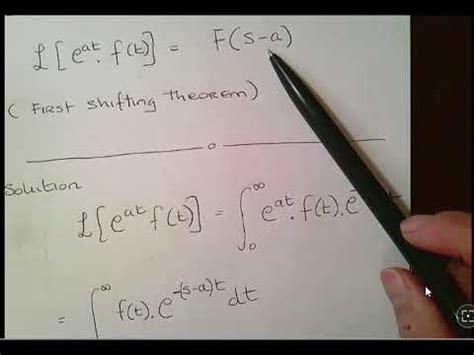 ℒ[e^{at}. f(t)] = F(s-a)
( FIRST Shifting THEOREM )
Solution
ℒ[e^{at} f(t)] = ∫_0^∞ e^{at}. f(t). e^-
= ∫_0^∞ f(t). e^{-(s-a)t} dt